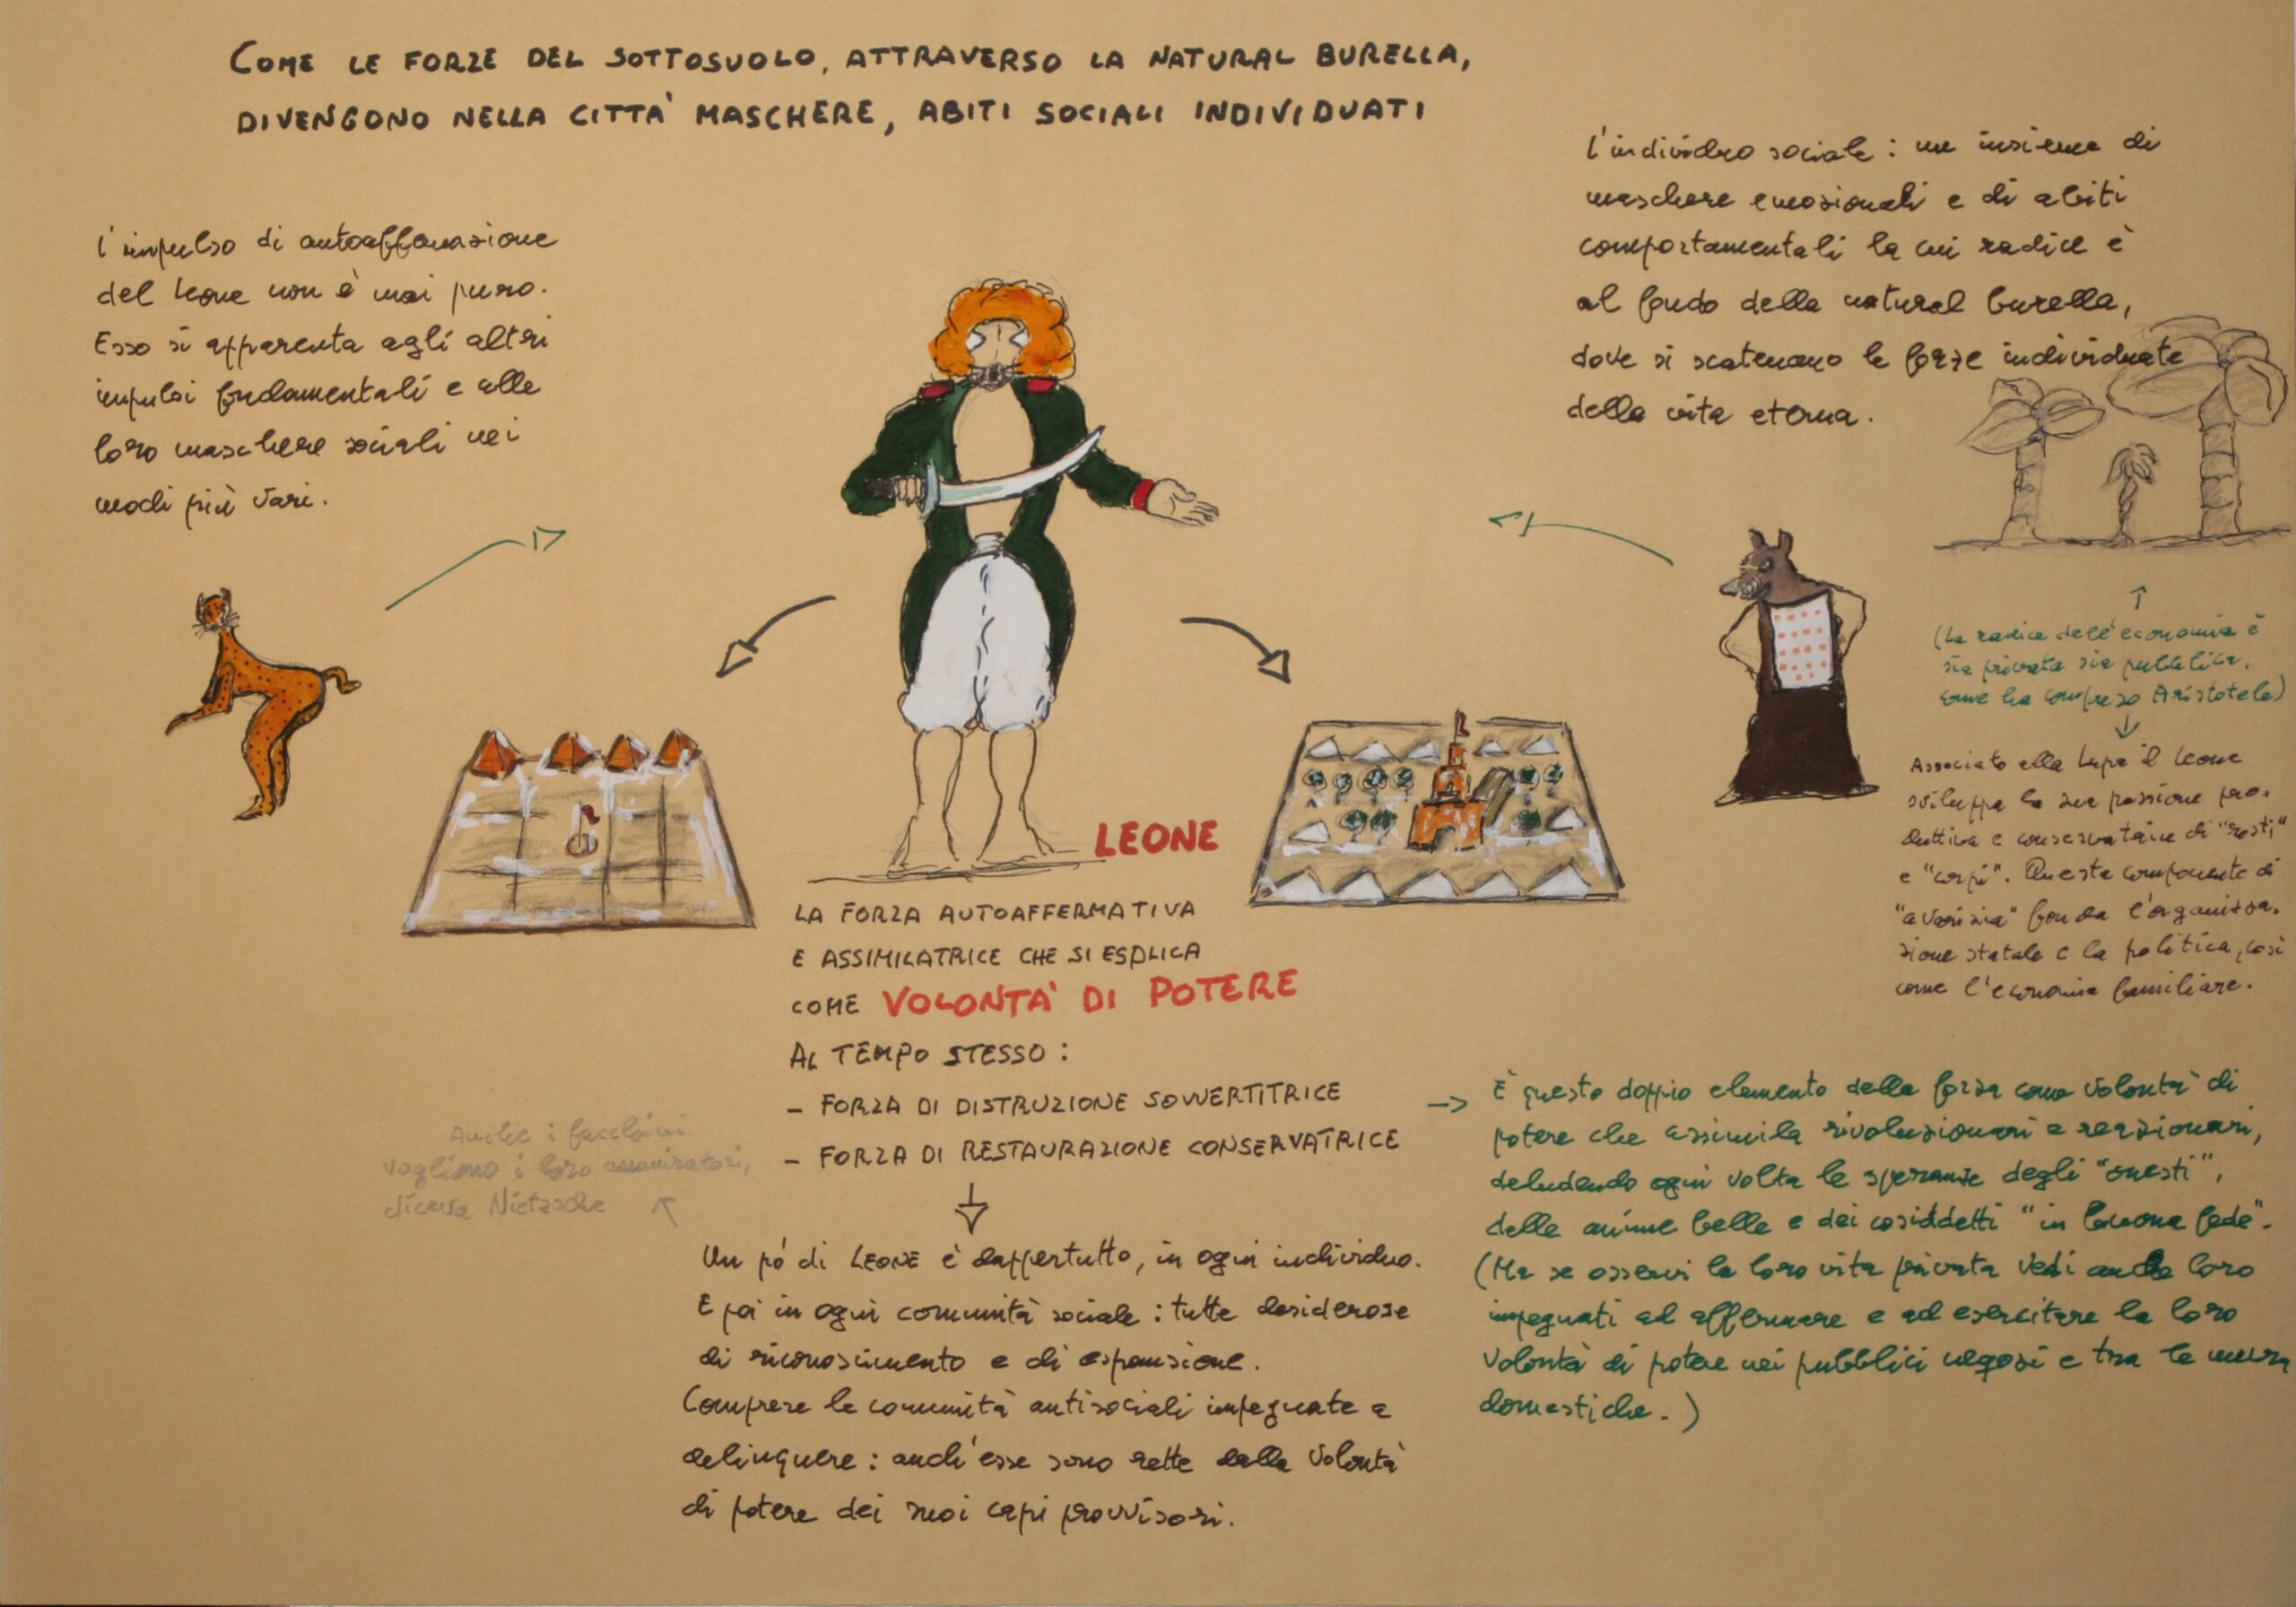 COME LE FORZE DEL SOTTOSUOLO, ATTRAVERSO LA NATURAL BURELLA,
DIVENGONO NELLA CITTA' MASCHERE, ABITI SOCIALI INDIVIDUATI
L'impulso di autoaffermazione
del Leone non è mai puro.
Esso si apparenta agli altri
impulsi fondamentali e alle
loro maschere sociali nei
modi più vari.
L'individuo sociale: un insieme di
maschere emozionali e di abiti
comportamentali la cui radice è
al fondo della natural burella,
dove si scatenano le forze individuate
della vita eterna.
(La radice dell'economia è
sia privata sia pubblica,
come ha compreso Aristotele)
Associato alla Lupa il Leone
sviluppa la sua passione pro-
duttiva e conservatrice di "resti"
e "corpi". Questa componente di
"avarizia" fonda l'organizza-
zione statale e la politica, così
come l'economia familiare.
LEONE
LA FORZA AUTOAFFERMATIVA
E ASSIMILATRICE CHE SI ESPLICA
COME VOLONTA' DI POTERE
AL TEMPO STESSO:
- FORZA DI DISTRUZIONE SOVVERTITRICE
- FORZA DI RESTAURAZIONE CONSERVATRICE
È questo doppio elemento della forza come volontà di
potere che assimila rivoluzionari e reazionari,
deludendo ogni volta le speranze degli "onesti",
delle anime belle e dei cosiddetti "in buona fede".
(Ma se osservi la loro vita privata vedi anche loro
impegnati ad affermare e ad esercitare la loro
volontà di potere nei pubblici negozi e tra le mura
domestiche.)
Anche i facchini
vogliono i loro ammiratori,
diceva Nietzsche
Un pò di LEONE è dappertutto, in ogni individuo.
E poi in ogni comunità sociale: tutte desiderose
di riconoscimento e di espansione.
Comprese le comunità antisociali impegnate a
delinquere: anch'esse sono rette dalla volontà
di potere dei suoi capi provvisori.